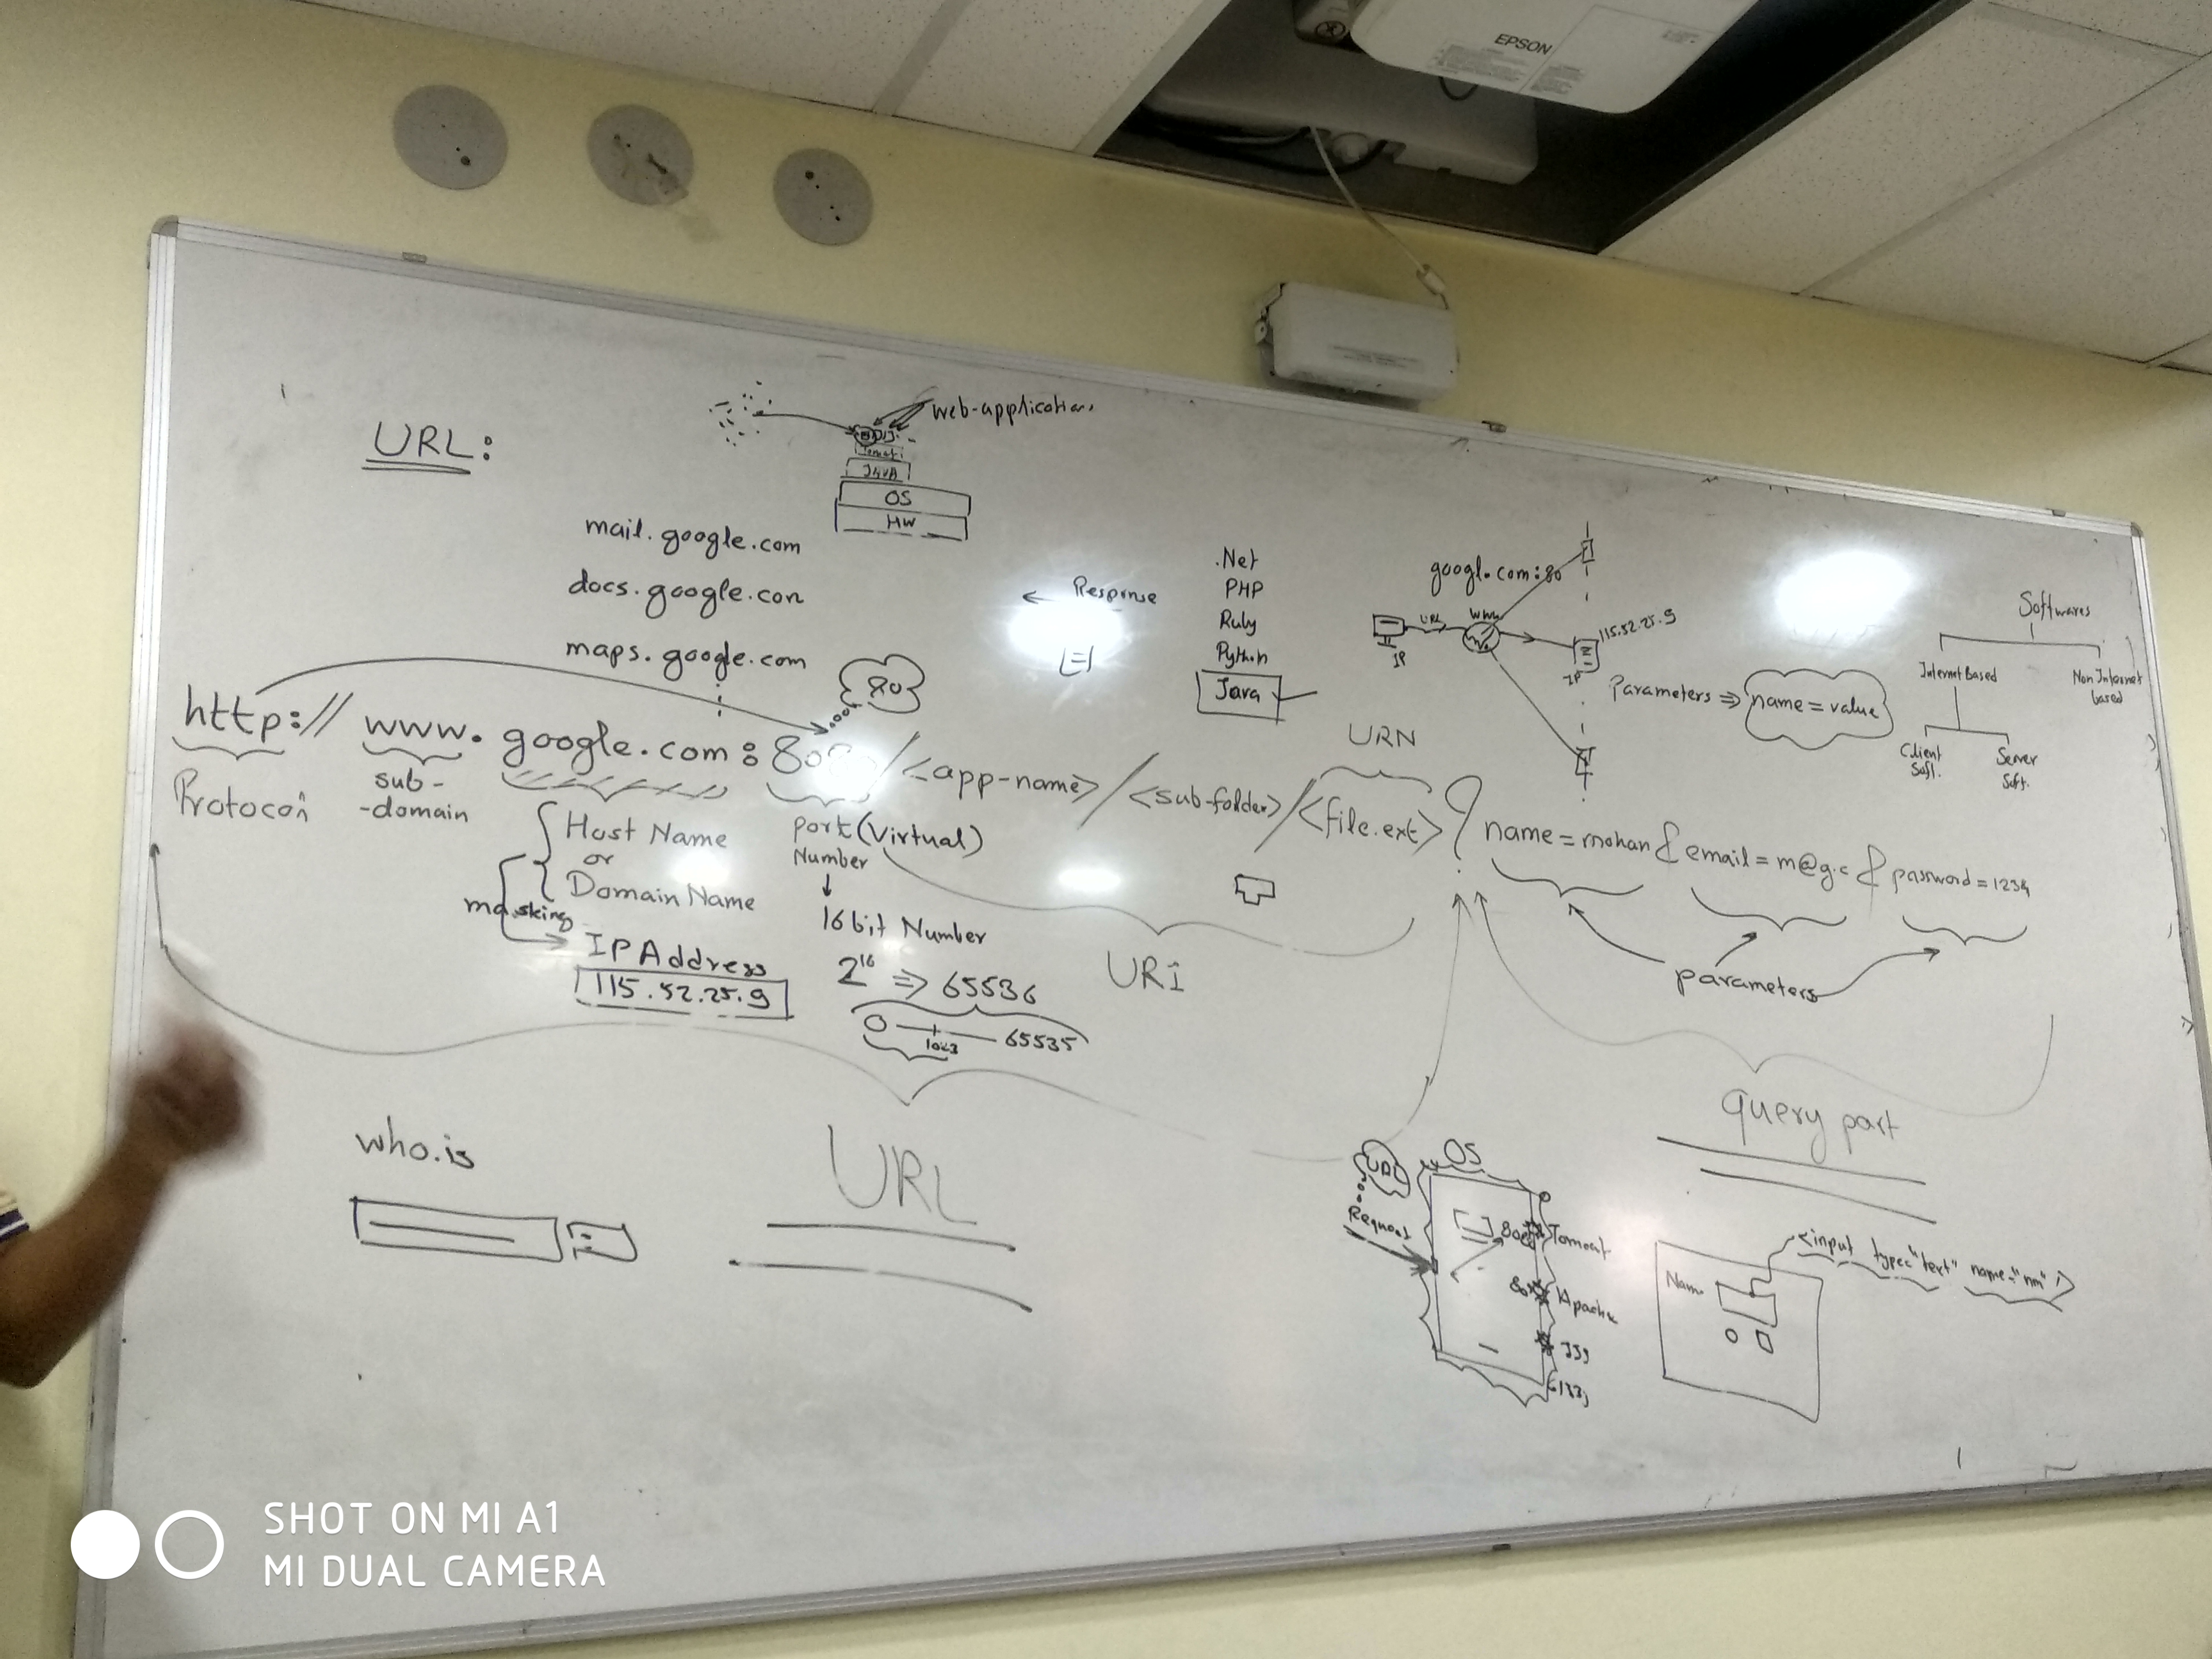 EPSON
URL:
web-applications
Tomcat
JAVA
OS
HW
mail.google.com
docs.google.com
maps.google.com
Response
.Net
PHP
Ruby
Python
Java
google.com:80
URL
WWW
IP
115.52.25.9
IP
Parameters ⇒ name=value
Softwares
Internet Based
Non Internet based
Client Soft.
Server Soft.
80
http://www.google.com:80/<app-name>/<sub-folder>/<file.ext>?name=mohan&email=m@g.c&password=1234
URN
Protocol
sub-
-domain
Host Name
or
Domain Name
masking
IP Address
115.52.25.9
port (Virtual)
Number
16 bit Number
2^16 ⇒ 65536
0 1023 65535
URI
parameters
query part
who.is
URL
OS
Request
Tomcat
Apache
Name
<input type="text" name="nm" />
SHOT ON MI A1
MI DUAL CAMERA